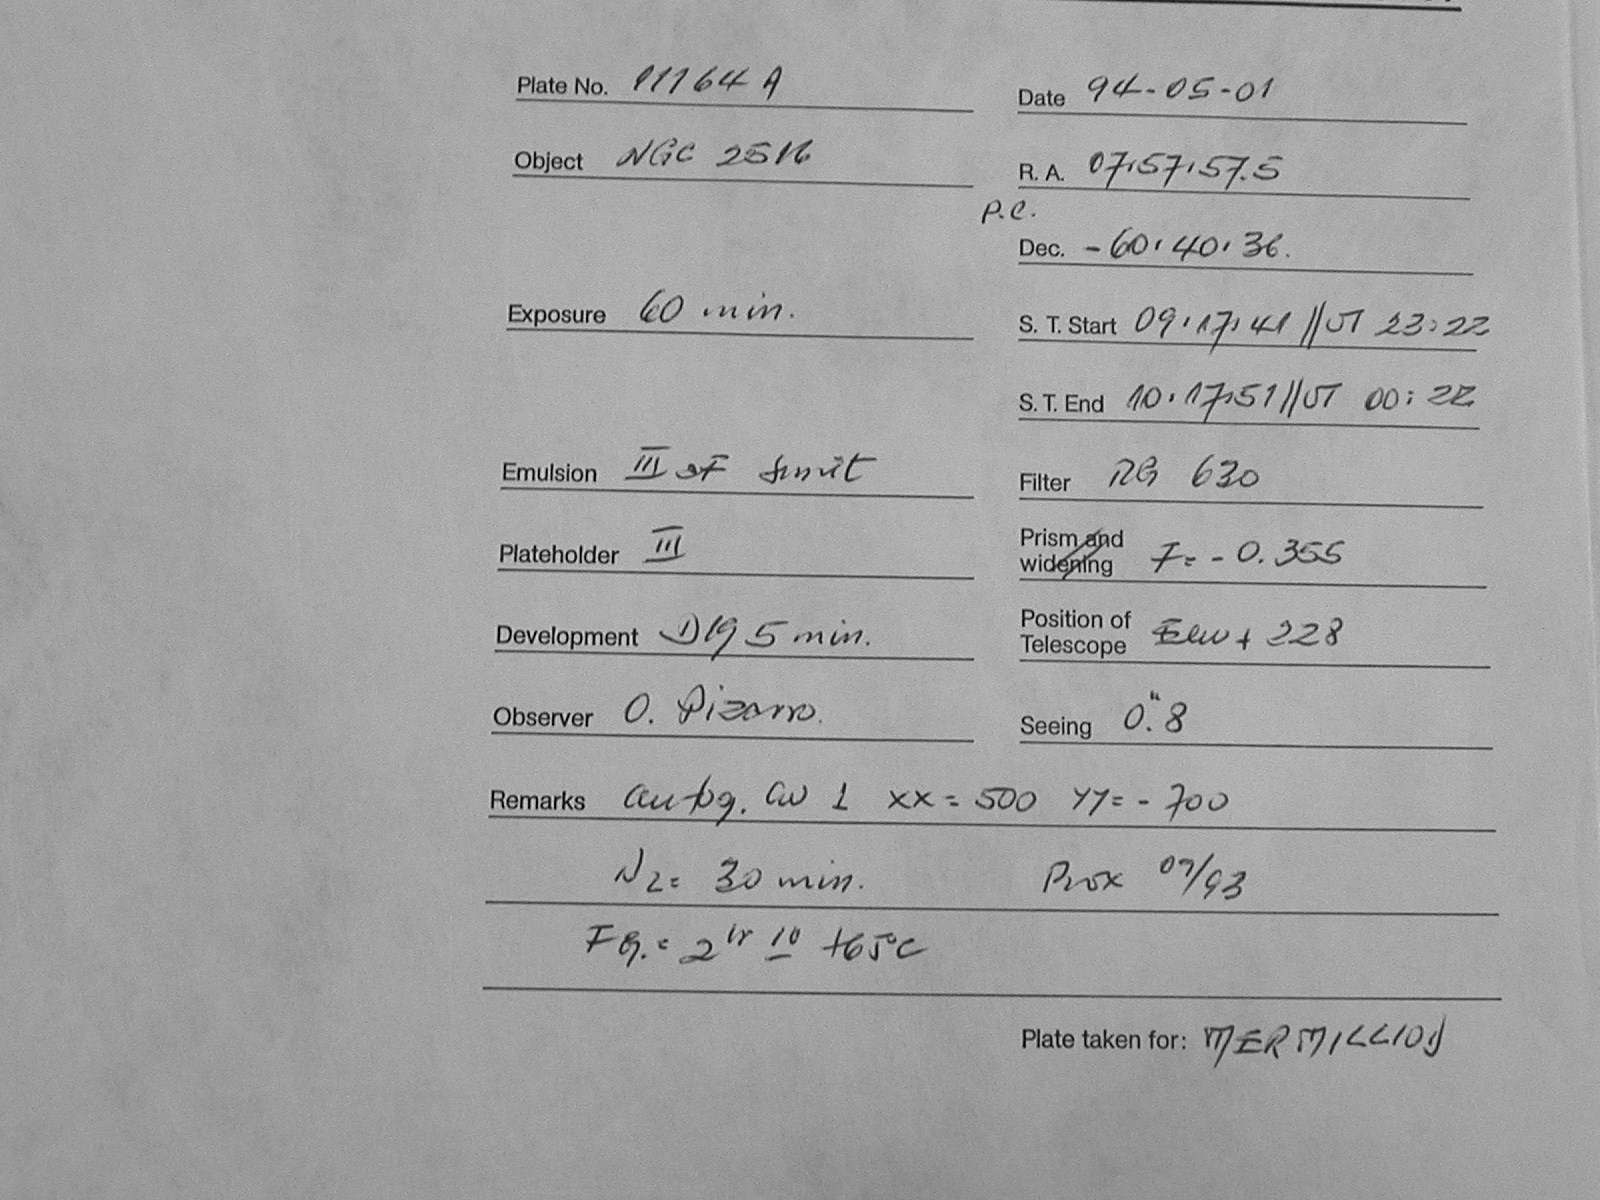 Plate No. 11164 A
Date 94-05-01
Object NGC 2516
R. A. 07:57:57.5
P.C.
Dec. -60:40:36.
Exposure 60 min.
S. T. Start 09:17:41 // UT 23:22
S. T. End 10:17:51 // UT 00:22
Emulsion III aF
Filter RG 630
Plateholder III
Prism and widening F= -0.355
Development D19 5 min.
Position of Telescope + 228
Observer O. Pizarro.
Seeing 0".8
Remarks 1 XX = 500 YY = - 700
N2= 30 min. 07/93
+65°C
Plate taken for: MERMILLIOD